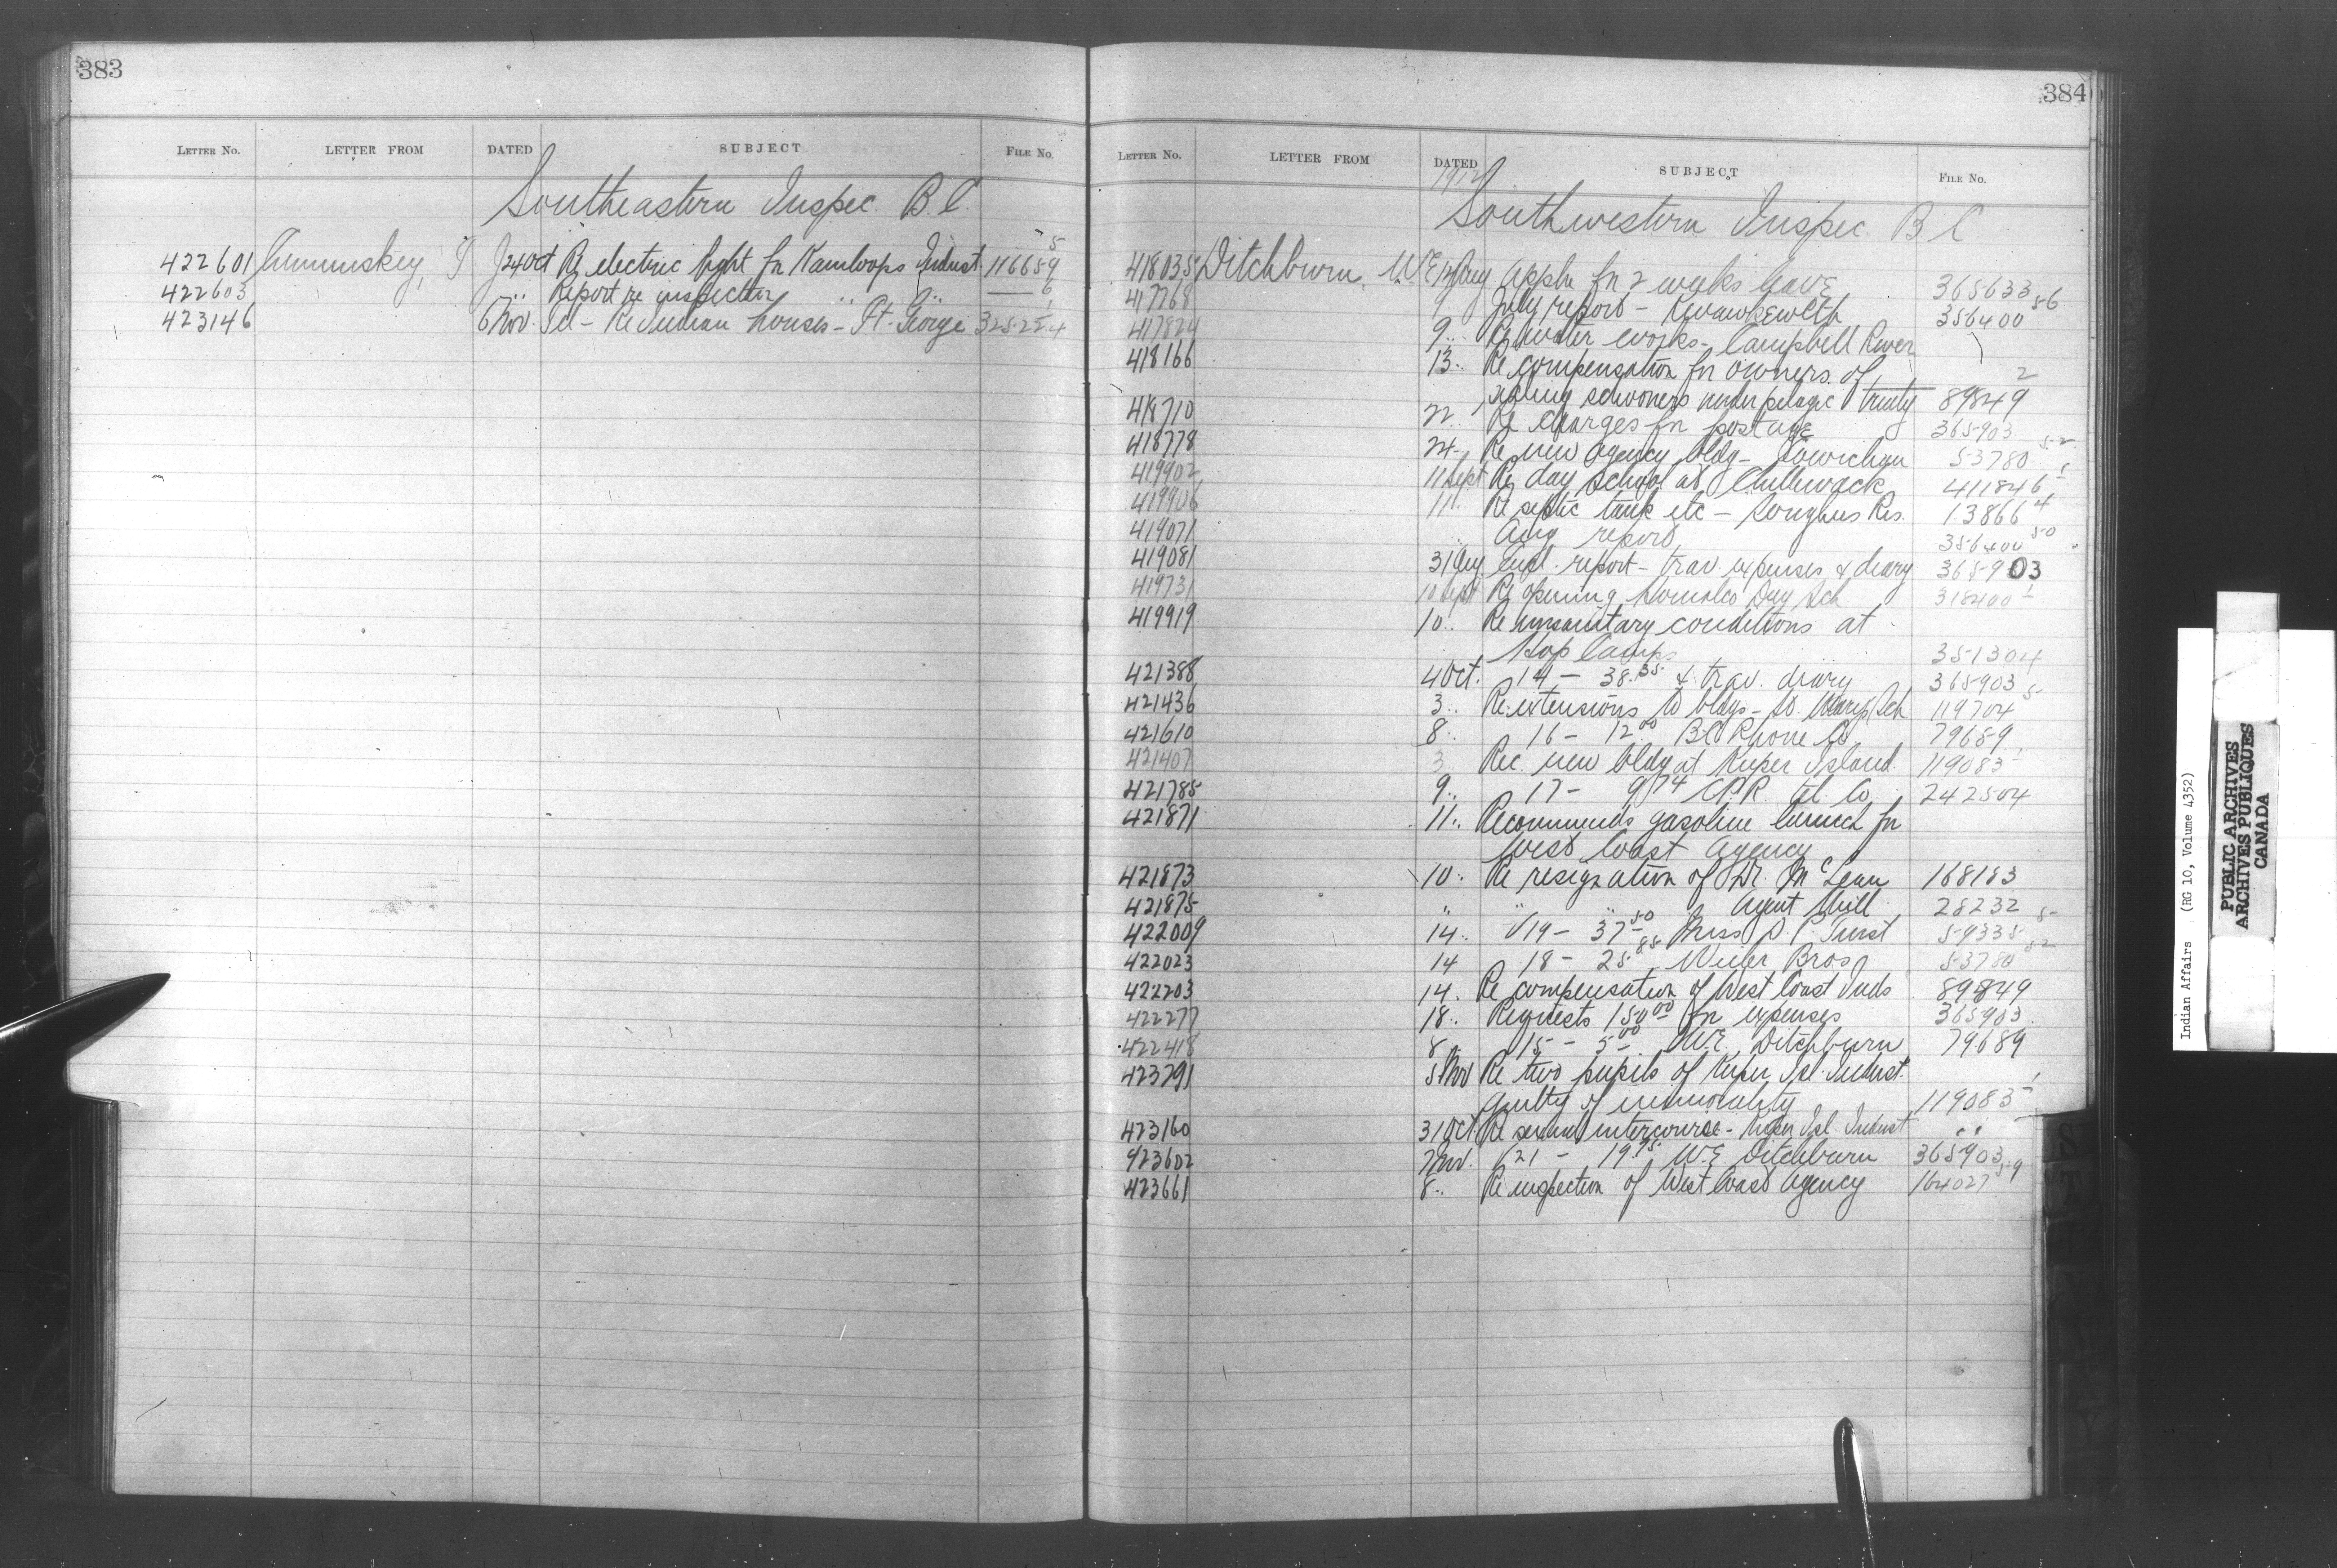 383
LETTER No. LETTER FROM DATED SUBJECT FILE No.
Southeastern Inspec. B.C.
422601 J 24 Oct Re electric light for Kamloops Indust. 116659 5
422603 " " Report re inspection " " 6
423146 6 Nov. Tel - Re Indian houses - Ft. George 325225 4
384
LETTER No. LETTER FROM DATED SUBJECT FILE No.
1912
Southwestern Inspec. B C
418035 Ditchburn, W E 12 Aug Appln for 2 weeks leave 365633
417768 9 July report - Kwawkewlth 356400 56
417824 9 " Re water works - Campbell River
418166 13 " Re compensation for owners of
sealing schooners under pelagic treaty 89849 2
418710 22 " Re charges for postage 365903
418778 24 " Re new agency bldg - Cowichan 53780 52
419902 11 Sept Re day school at Chilliwack 411846 1
419906 11 " Re septic tank etc - Songhees Res. 13866 4
419071 " Aug report 356400 50
419081 31 Aug report - trav. expenses & diary 365903
419731 10 Sept Re opening Homalco Day Sch 318400 1
419919 10 " Re unsanitary conditions at
Hop Camps 351304
421388 4 Oct. 14 - 38.35 & trav. diary 365903
421436 3 " Re extensions to bldgs - St. Marys Sch 119704 5
421610 8 " 16 - 12.00 B C Phone Co. 79659
421407 3 Rec. new bldg at Kuper Island. 119083 1
421785 9 " 17 - 9.74 C.P.R. Tel. Co. 242504
421871 11 " Recommends gasoline launch for
West Coast Agency
421873 10 " Re resignation of Dr. McLean 168183
421875 " " " Agent Neill 28232
422009 14 " V 19 - 37.50 Miss 59335 5
422023 14 18 - 25.85 Weiler Bros 53780 52
422203 14 " Re compensation of West Coast Inds 89849
422277 18 " Requests 150.00 for expenses 365903
422418 8 " 15 - 5.00 W.E. Ditchburn 79689
423291 5 Nov Re two pupils of Kuper Isl. Indust.
guilty of immorality 119083 1
423160 31 Oct. Re sexual intercourse - Kuper Isl. Indust " "
423602 7 Nov. V 21 - 19.75 W.E Ditchburn 365903
423661 8 " Re inspection of West Coast Agency 164027 59
Indian Affairs (RG 10, Volume 4352)
PUBLIC ARCHIVES
ARCHIVES PUBLIQUES
CANADA